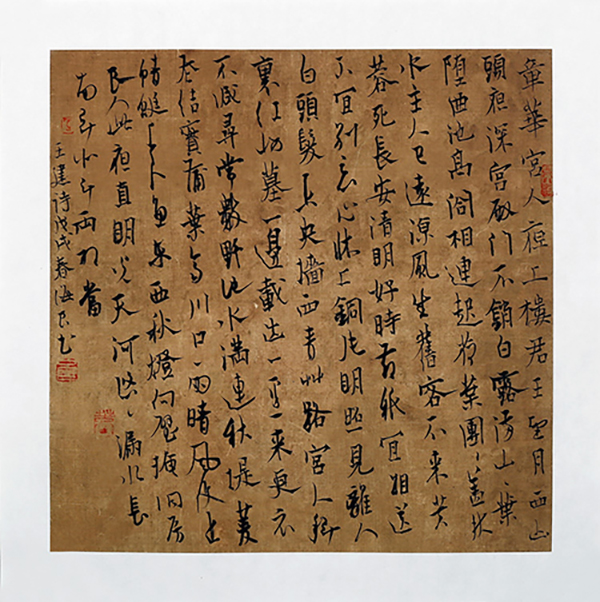 章華宮人夜上樓君王望月西山
頭夜深宮殿門不鎖白露滿山〻葉
墮曲池高閣相連起荷葉團〻蓋秋
水主人已遠涼風生舊客不來芙
蓉死長安清明好時節祇宜相送
不宜別惡心床上銅片明照見離人
白頭髮未央墻西青艸路宮人斜
裏紅妝墓一邊載出一邊來更衣
不減尋常數野池水滿連秋堤菱
花結實蒲葉齊川口雨晴風復止
蜻蜓上下魚東西秋燈向壁掩洞房
良人此夜直明光天河悠〻漏水長
南斗北斗兩相當
王建詩戊戌春海良書